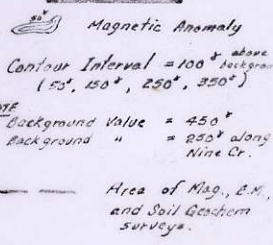 50ˠ Magnetic Anomaly
Contour Interval = 100ˠ above
(50ˠ, 150ˠ, 250ˠ, 350ˠ)
Background Value = 450ˠ
Background " = 250ˠ along
Nine Cr.
Area of Mag., E.M.,
and Soil Geochem
surveys.